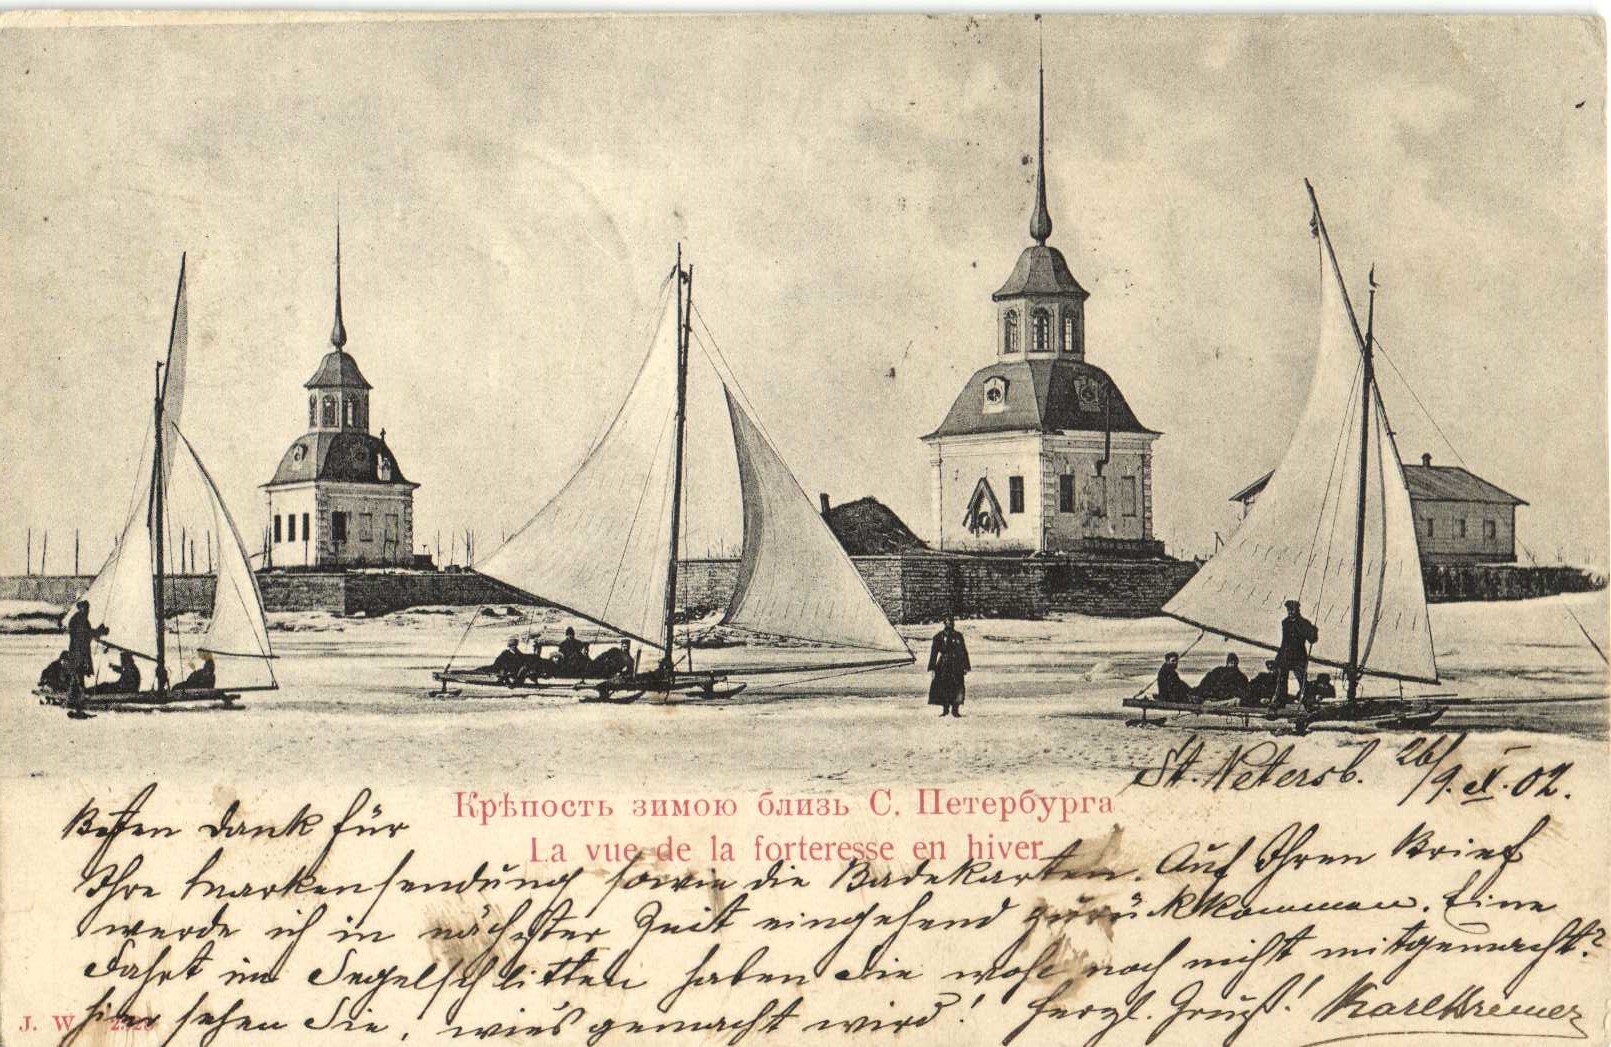 Крѣпость зимою близь С. Петербурга
La vue de la forteresse en hiver
St. Petersb. 26/9. II. 02.
Besten Dank für
Ihre Markensendung sowie die Badekarten. Auf Ihren Brief
werde ich in nächster Zeit eingehend zurückkommen. Eine
Fahrt im Segelschlitten haben Sie wohl noch nicht mitgemacht?
Hier sehen Sie, wie's gemacht wird! Herzl. Gruß! Karl Kremer
J. W.